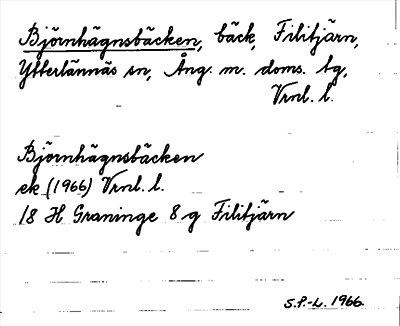 Björnhägnsbäcken, bäck, Filitjärn,
Ytterlännäs sn, Ång. m. doms. tg,
Vrnl. l.
Björnhägnsbäcken
ek (1966) Vrnl. l.
18 H Graninge 8 g Filitjärn
S.P.-L. 1966.